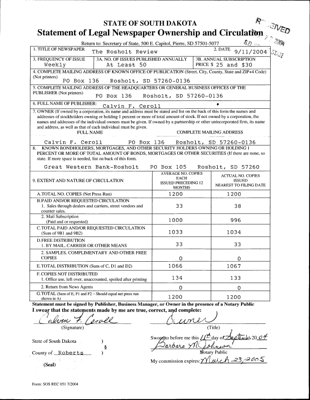 STATE OF SOUTH DAKOTA
Statement of Legal Newspaper Ownership and Circulation
Return to: Secretary of State, 500 E. Capitol, Pierre, SD 57501-5077
1. TITLE OF NEWSPAPER
The Rosholt Review
2. DATE
9/11/2004
3. FREQUENCY OF ISSUE
Weekly
3A. NO. OF ISSUES PUBLISHED ANNUALLY
At Least 50
3B. ANNUAL SUBSCRIPTION
PRICE $ 25 and $30
4. COMPLETE MAILING ADDRESS OF KNOWN OFFICE OF PUBLICATION (Street, City, County, State and ZIP+4 Code)
(Not printers)
PO Box 136 Rosholt, SD 57260-0136
5. COMPLETE MAILING ADDRESS OF THE HEADQUARTERS OR GENERAL BUSINESS OFFICES OF THE
PUBLISHER (Not printers)
PO Box 136 Rosholt, SD 57260-0136
6. FULL NAME OF PUBLISHER:
Calvin F. Ceroll
7. OWNER (If owned by a corporation, its name and address must be stated and fist on the back of this form the names and
addresses of stockholders owning or holding 1 percent or more of total amount of stock. If not owned by a corporation, the
names and addresses of the individual owners must be given. If owned by a partnership or other unincorporated firm, its name
and address, as well as that of each individual must be given.
FULL NAME
COMPLETE MAILING ADDRESS
Calvin F. Ceroll PO Box 136 Rosholt, SD 57260-0136
8. KNOWN BONDHOLDERS, MORTGAGES, AND OTHER SECURITY HOLDERS OWNING OR HOLDING 1
PERCENT OR MORE OF TOTAL AMOUNT OF BONDS, MORTGAGES OR OTHER SECURITIES (If there are none, so
state. If more space is needed, list on back of this form.
Great Western Bank-Rosholt PO Box 105 Rosholt, SD 57260
9. EXTENT AND NATURE OF CIRCULATION
AVERAGE NO. COPIES
EACH
ISSUED PRECEDING 12
MONTHS
ACTUAL NO. COPIES
ISSUED
NEAREST TO FILING DATE
A. TOTAL NO. COPIES (Net Press Run)
1200
1200
B. PAID AND/OR REQUESTED CIRCULATION
1. Sales through dealers and carriers, street vendors and
counter sales.
33
38
2. Mail Subscription
(Paid and or requested)
1000
996
C. TOTAL PAID AND/OR REQUESTED CIRCULATION
(Sum of 9B1 and 9B2)
1033
1034
D. FREE DISTRIBUTION
1. BY MAIL, CARRIER OR OTHER MEANS
33
33
2. SAMPLES. COMPLIMENTARY AND OTHER FREE
COPIES
0
0
E. TOTAL DISTRIBUTION (Sum of C, D1 and D2)
1066
1067
F. COPIES NOT DISTRIBUTED
1. Office use, left over, unaccounted, spoiled after printing
134
133
2. Return from News Agents
0
0
G. TOTAL (Sum of E, F1 and F2 – Should equal net press run
shown in A)
1200
1200
Statement must be signed by Publisher, Business Manager, or Owner in the presence of a Notary Public
I swear that the statements made by me are true, correct, and complete:
Calvin F. Ceroll
Owner
(Signature)
(Title)
State of South Dakota )
§
County of Roberts )
(Seal)
Sworn to before me this 11th day of September 2004
Barbara M Johnson
Notary Public
My commission expires: March 23, 2005
Form: SOS REC 051 7/2004